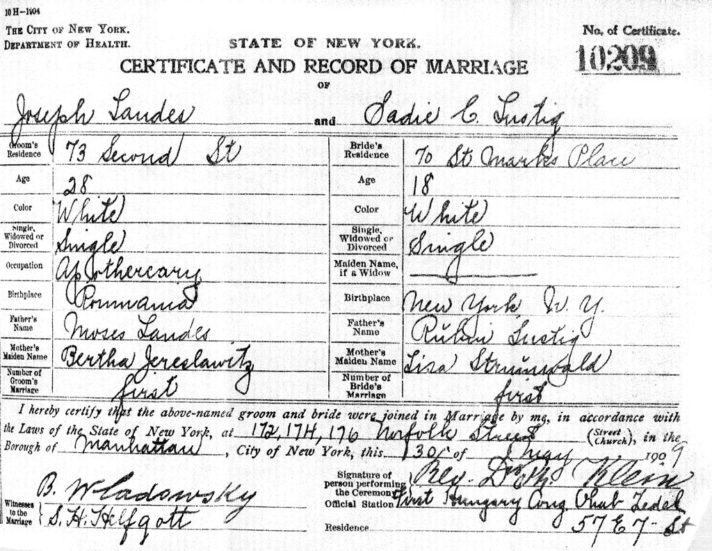 10 H-1904
THE CITY OF NEW YORK.
DEPARTMENT OF HEALTH.
No. of Certificate.
10209
STATE OF NEW YORK.
CERTIFICATE AND RECORD OF MARRIAGE
OF
Joseph Landes and Sadie C. Lustig
Groom's Residence 73 Second St Bride's Residence 70 St Marks Place
Age 28 Age 18
Color White Color White
Single, Widowed or Divorced Single Single, Widowed or Divorced Single
Occupation Apothercary Maiden Name, if a Widow
Birthplace Roumania Birthplace New York N. Y.
Father's Name Moses Landes Father's Name Lustig
Mother's Maiden Name Bertha Jereslawitz Mother's Maiden Name Lisa
Number of Groom's Marriage first Number of Bride's Marriage first
I hereby certify that the above-named groom and bride were joined in Marriage by me, in accordance with
the Laws of the State of New York, at 172, 174, 176 Norfolk Street (Street Church), in the
Borough of Manhattan, City of New York, this 30 of May 1909
Signature of person performing the Ceremony Rev. Dr Klein
Witnesses to the Marriage B. Wladowsky
S. H. Helfgott
Official Station First Hungary Cong. Ohab Zedek
Residence 57 E 7 St